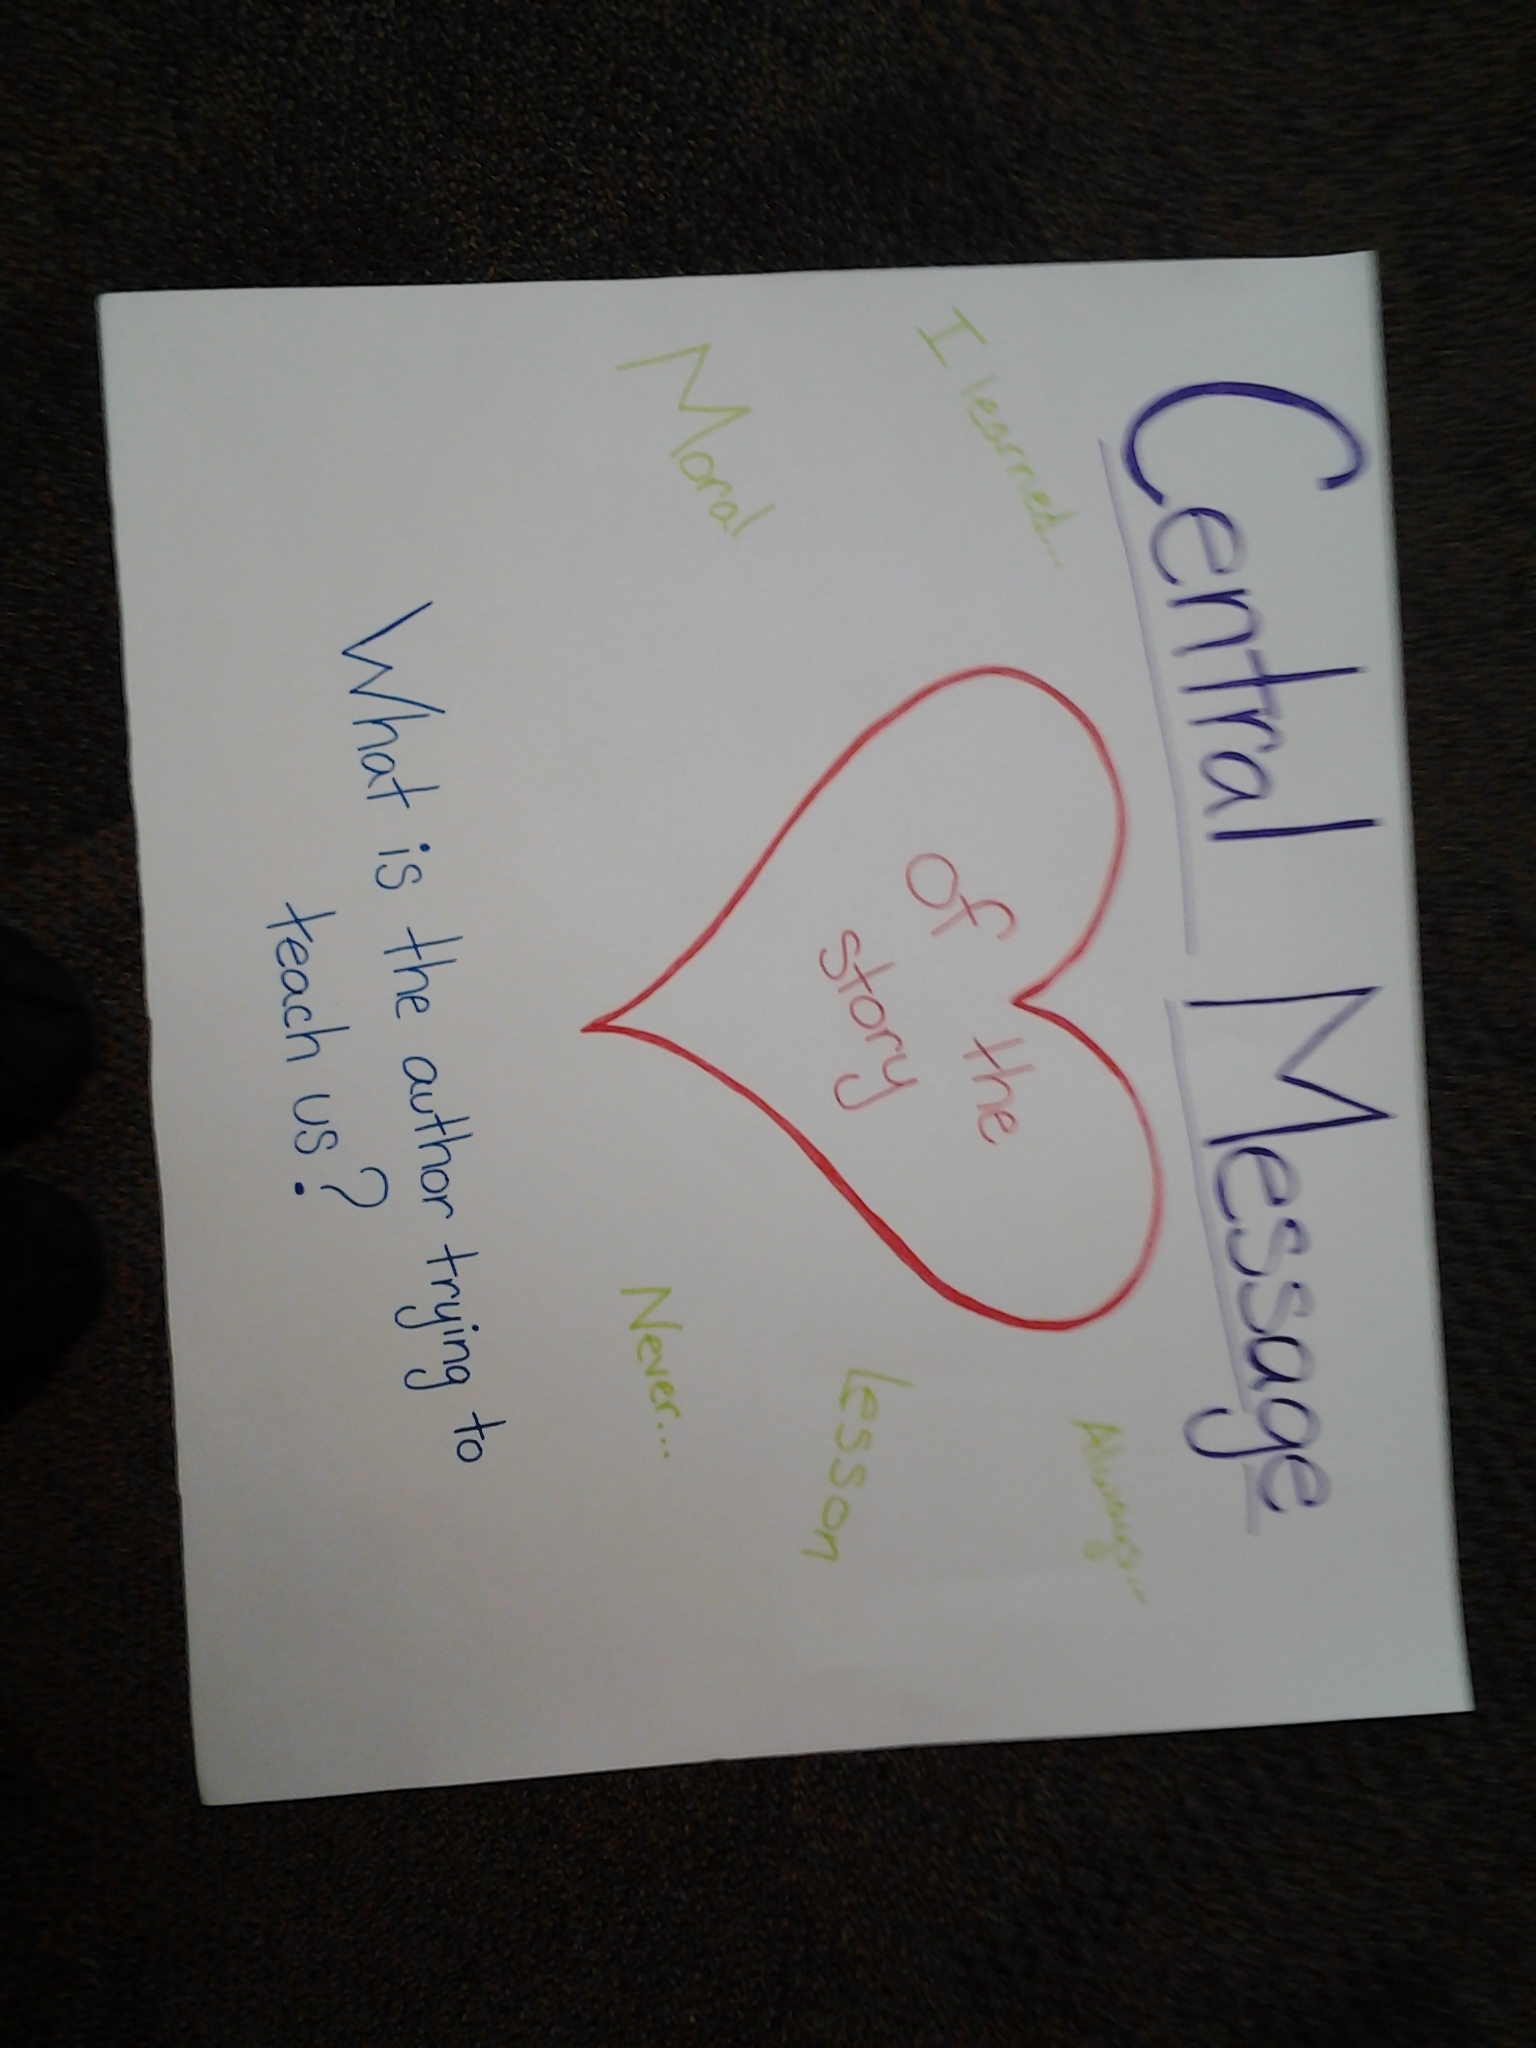 Central Message
I learned...
Always...
of the
story
Moral
Lesson
Never...
What is the author trying to
teach us?